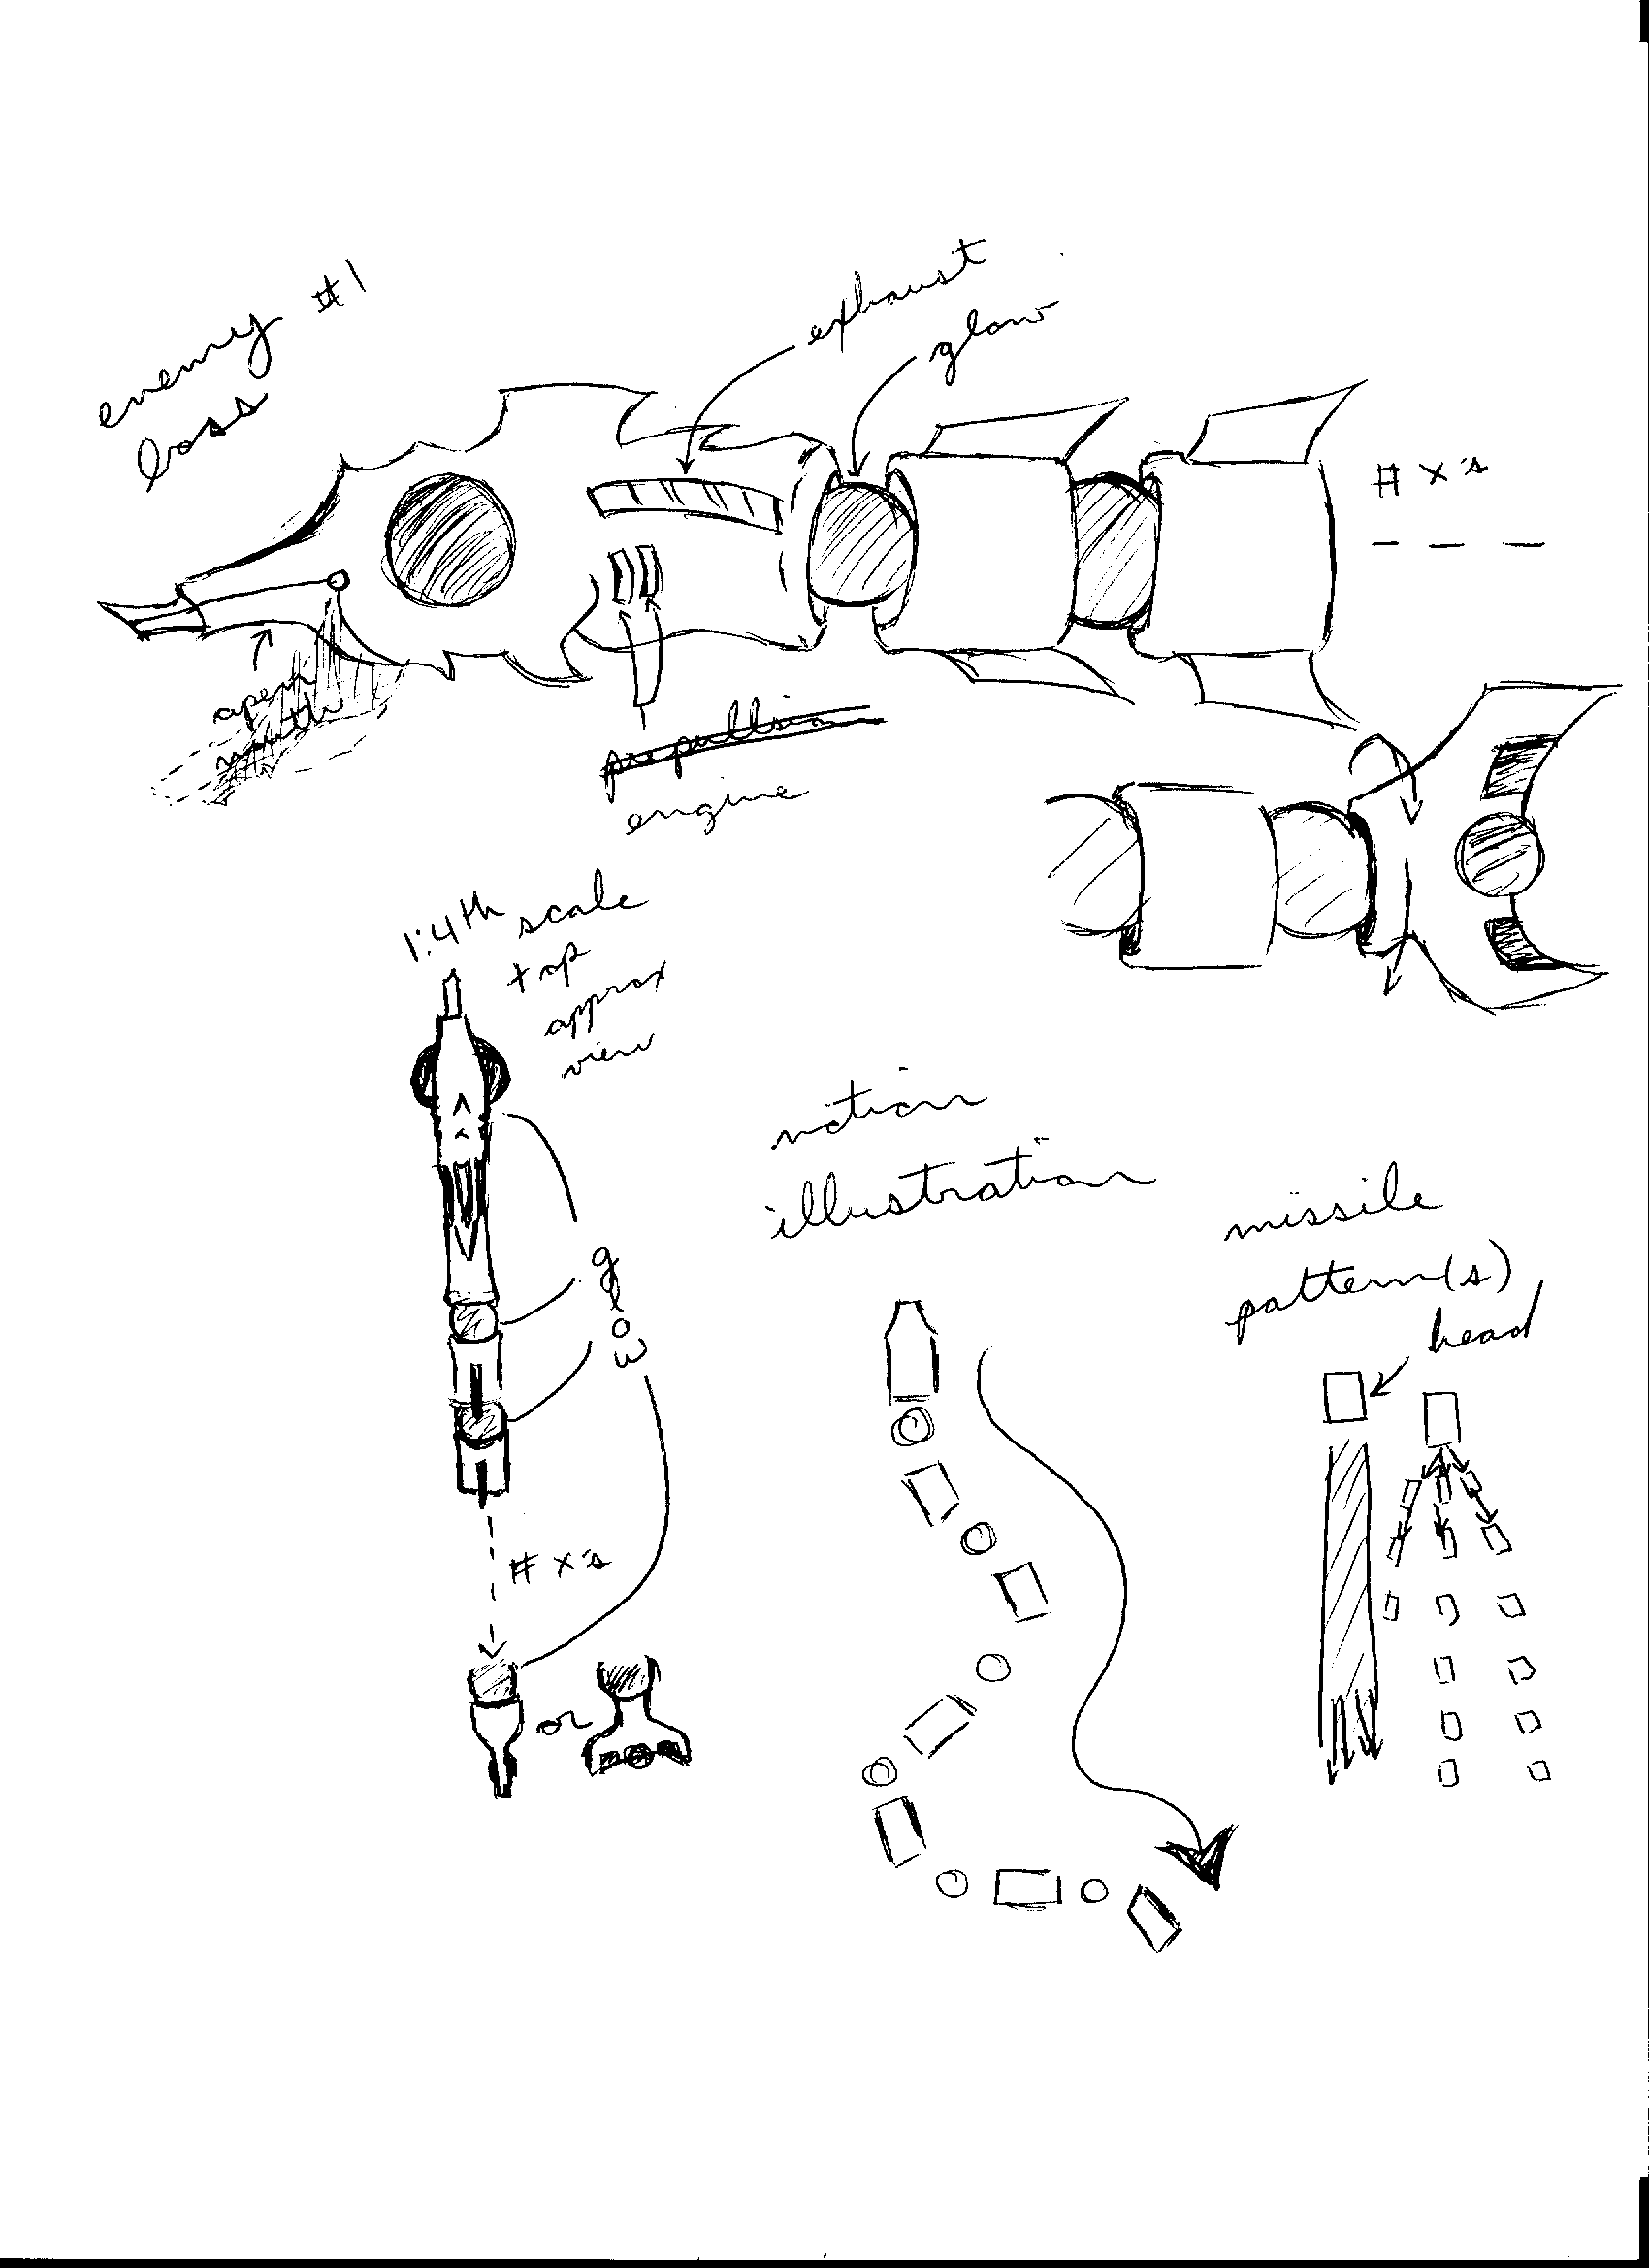 enemy #1
boss
exhaust
glow
# x's
open
mouth
propullsion
engine
1:4th scale
top
approx
view
glow
# x's
or
motion
illustration
missile
pattern(s)
head